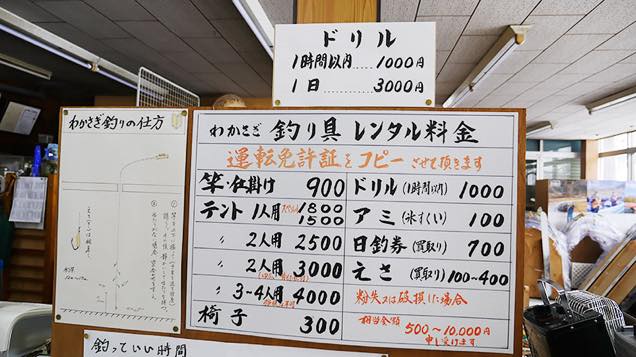 ドリル
1時間以内……1000円
1日………3000円
わかさぎ釣りの仕方
わかさぎ 釣り具 レンタル料金
運転免許証をコピーさせて頂きます
竿・仕掛け 900
テント 1人用 1800
1500
〃 2人用 2500
〃 2人用 3000
〃 3~4人用 4000
椅子 300
ドリル(1時間以内) 1000
アミ(氷すくい) 100
日釣券(買取り) 700
えさ(買取り) 100~400
紛失又は破損した場合
相当金額 500~10,000円
申し受けます
釣っていい時間